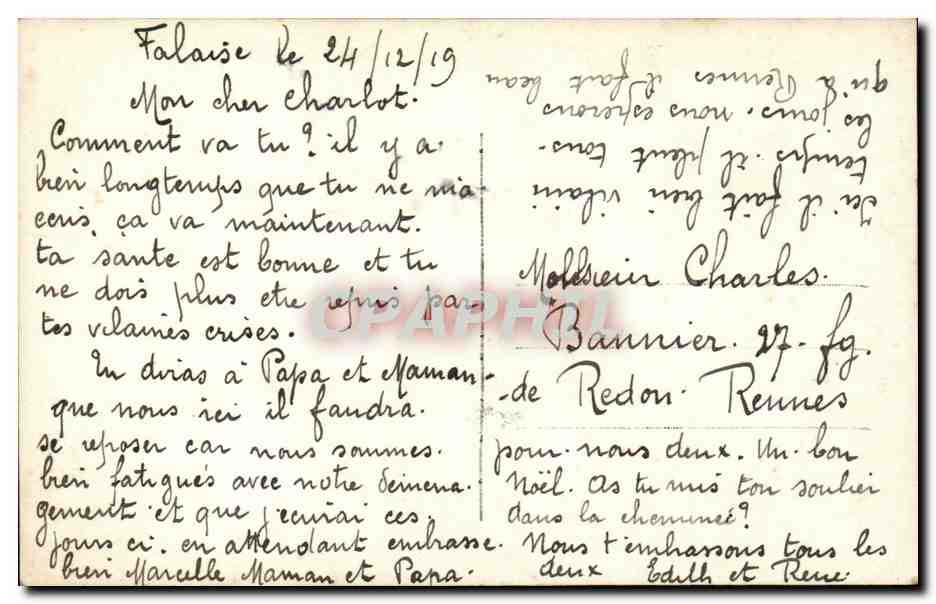 Falaise le 24/12/19
Mon cher Charlot.
Comment va tu? il y a.
bien longtemps que tu ne m'a
ecris, ça va maintenant.
ta sante est bonne et tu
ne dois plus etre repris par
tes vilaines crises.
Tu diras à Papa et Maman
que nous ici il faudra.
se reposer car nous sommes.
bien fatigués avec notre demena-
gement et que j'ecrirai ces.
jours ci. en attendant embrasse.
bien Marcelle Maman et Papa.
pour nous deux. Un bon
Noël. As tu mis ton soulier
dans la cheminee?
Nous t'embrassons tous les
deux Edith et Rene.
Ici il fait bien vilain
temps. il pleut tous
les jours. nous esperons
qu'à Rennes il fait beau
Monsieur Charles.
Bannier. 27. fg.
de Redon. Rennes
CPAPHIL